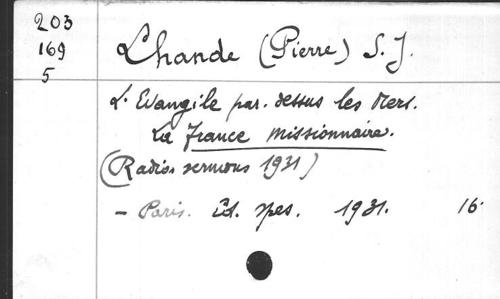 203
169
5
Lhande (Pierre) S. J.
L'Evangile par-dessus les Mers.
La France missionnaire.
(Radio-sermons 1931)
- Paris. Ed. Spes. 1931. 16°